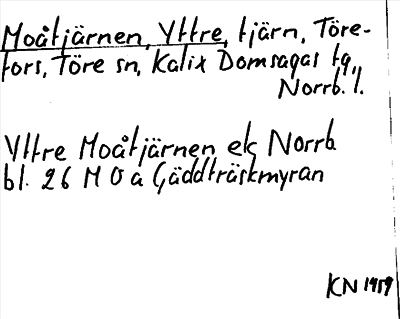 Moåtjärnen, Yttre, tjärn, Töre-
fors, Töre sn, Kalix Domsagas tg,
Norrb. l.
Yttre Moåtjärnen ek Norrb
bl. 26 M O a Gäddträskmyran
KN 1959